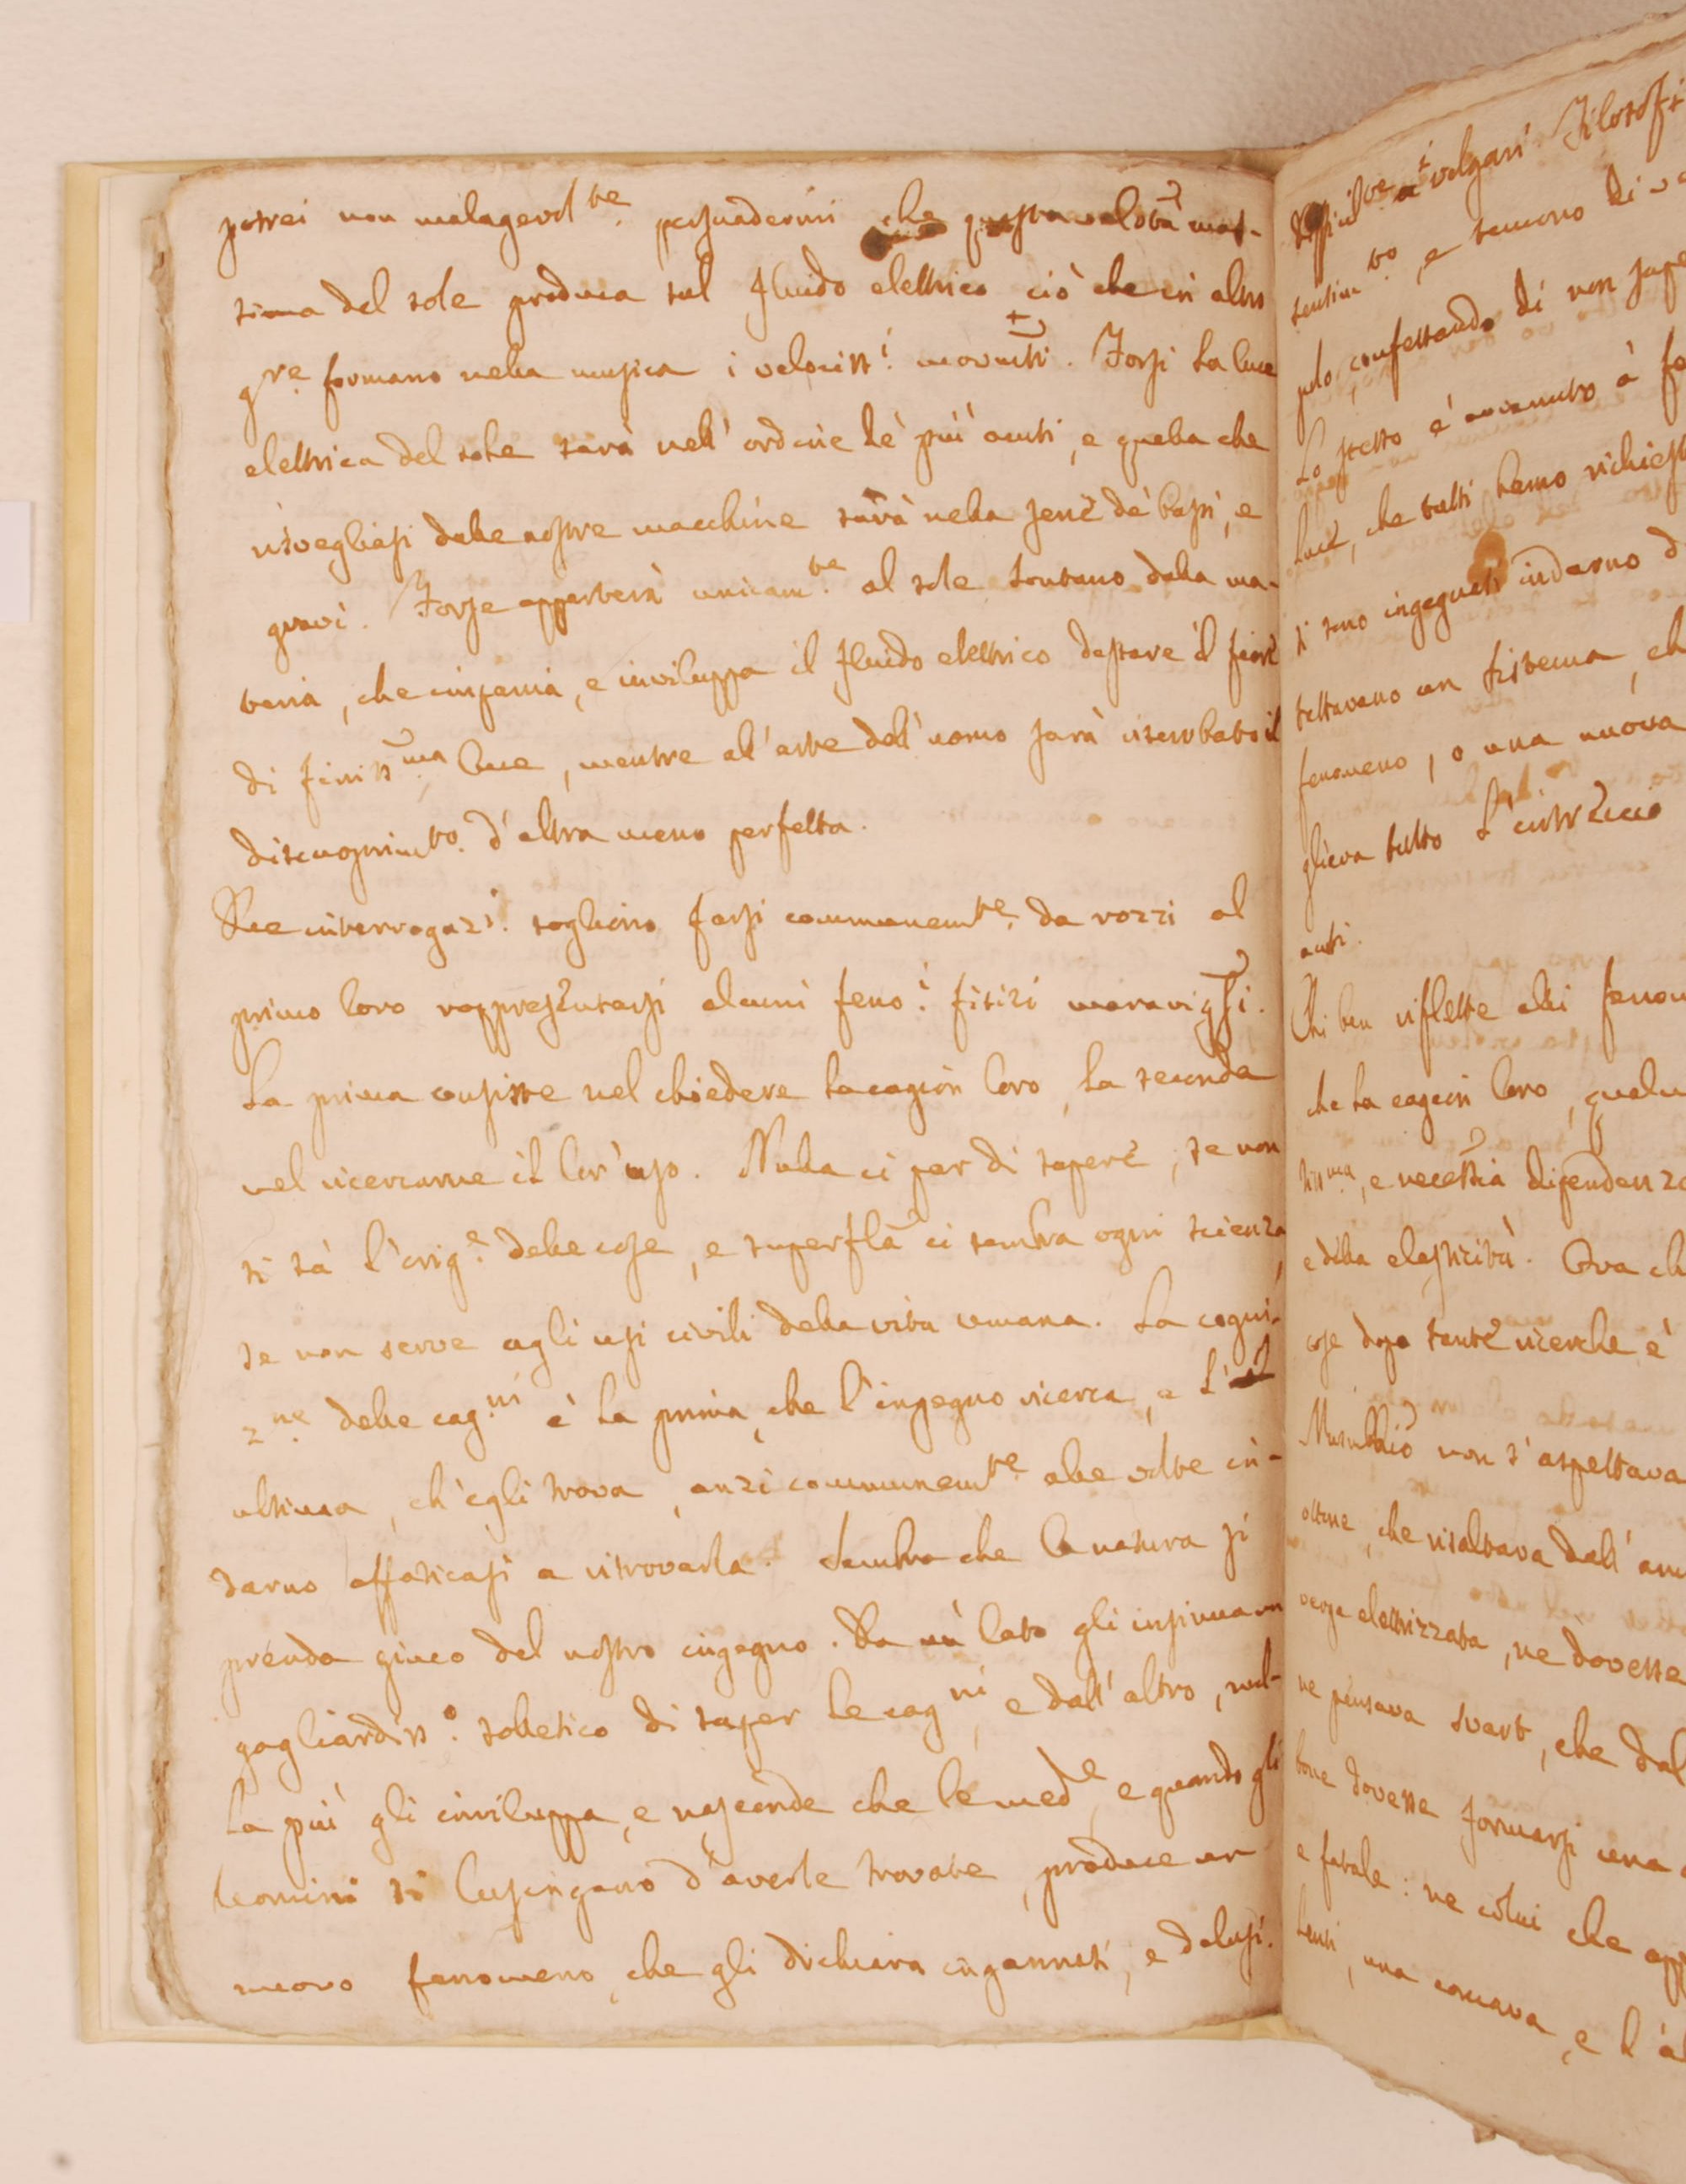 potrei non malagevol.te persuadermi che questa veloctà mas-
sima del sole produca sul fluido elettrico ciò che in altro
g.re formano nella musica i velociss.i movimti. Forsi la luce
elettrica del sole sarà nell' ordine de' più acuti, e quella che
risvegliasi dalle nostre macchine sarà nella serie de' bassi, e
gravi. Forse apparterrà unicam.te al sole lontano dalla ma-
teria, che circonda, e inviluppa il fluido elettrico destare il fiore
di finiss.ma luce, mentre all' arte dell' uomo sarà riserbato il
discuoprim.to d' altra meno perfetta.
Due interrogaz.i sogliono farsi communem.te da rozzi al
primo loro rappresentarsi alcuni feno.i fisizi maravigli.
La prima consiste nel chiedere la cagion loro, la seconda
nel ricercarne il lor' uso. Nulla ci par di sapere, se non
si sà l' orig.e delle cose, e superfla ci sembra ogni scienza,
se non serve agli usi civili della vita umana. La cogni-
z.ne delle cag.ni è la prima, che l' ingegno ricerca, e l'
ultima, ch' egli trova, anzi communem.te alle volte in-
darno affaticasi a ritrovarla. Sembra che la natura si
prenda giuoco del nostro ingegno. Da un lato gli insinua un
gagliardiss.o solletico di saper le cag.ni, e dall' altro, nul-
la più gli inviluppa, e nasconde che le med.e e quando gli
uomini si lusingano d' averle trovate, produce un
nuovo fenomeno, che gli dichiara ingannati, e delusi.
a' volgari Filosofi
sentim.to, e temono di
confessando di non sape
Lo stesso è avvenuto à
luce, che tutti hanno richies
si sono ingegneti indarno d
un sistema, ch
fenomeno, o una nuova
glieva tutto l' intreccio
anti.
Chi ben riflette alli fenom
che la cagion loro, qualu
e necessia dipendenza
e della elasticità. Ora ch
cose dopo tante ricerche è
non s' aspettava
che risaltava dall'
verga elettrizzata, ne dovesse
ne pensava , che dal
dovesse formarsi una
e fatale: ne colui che app
, una concava, e l' al